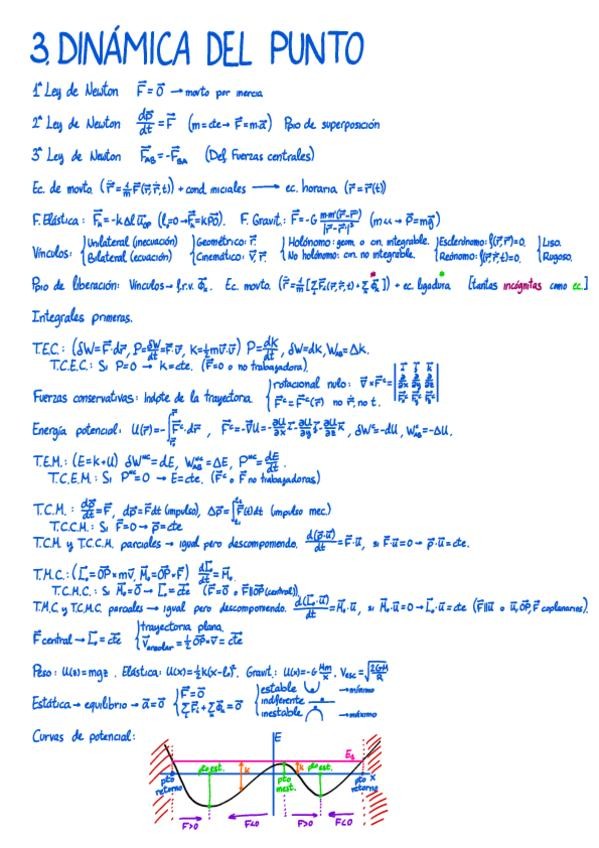 3. DINÁMICA DEL PUNTO
1ª Ley de Newton F⃗=0⃗ → movto por inercia
2ª Ley de Newton dp⃗/dt=F⃗ (m=cte→ F⃗=m·a⃗) Ppio de superposición
3ª Ley de Newton F⃗AB=-F⃗BA (Def. Fuerzas centrales)
Ec. de movto. (r⃗̈=1/m F⃗(r⃗,r⃗̇,t)) + cond. iniciales → ec. horaria (r⃗=r⃗(t))
F. Elástica: F⃗k=-kΔl u⃗OP (l₀=0→F⃗k=kP⃗O). F. Gravit.: F⃗=-G m·m'(r⃗-r⃗')/|r⃗-r⃗'|³ (m<< → P⃗=mg⃗)
Vínculos: {Unilateral (inecuación) {Geométrico: r⃗. {Holónomo: geom. o cin. integrable. {Esclerónomo: f(r⃗,r⃗̇)=0. {Liso.
Bilateral (ecuación) Cinemático: v⃗, r⃗. No holónomo: cin. no integrable. Reónomo: f(r⃗,r⃗̇,t)=0. Rugoso.
Ppio de liberación: Vínculos→ f.r.v. Φ⃗k. Ec. movto. (r⃗̈=1/m [ΣF⃗i(r⃗,r⃗̇,t)+Σ Φ⃗k]) + ec. ligadura [tantas incógnitas como ec.]
Integrales primeras.
T.E.C.: (δW=F⃗·dr⃗, P=δW/dt=F⃗·v⃗, K=½mv⃗·v⃗) P=dK/dt, δW=dK, WAB=ΔK.
T.C.E.C.: Si P=0 → K=cte. (F⃗=0 o no trabajadora).
Fuerzas conservativas: Indpte de la trayectoria {rotacional nulo: ∇⃗×F⃗ᶜ= |i⃗ j⃗ k⃗ ∂/∂x ∂/∂y ∂/∂z Fxᶜ Fyᶜ Fzᶜ|
F⃗ᶜ=F⃗ᶜ(r⃗) no r⃗̇, no t.
Energía potencial: U(r⃗)=-∫F⃗ᶜ·dr⃗, F⃗ᶜ=-∇⃗U=-∂U/∂x i⃗-∂U/∂y j⃗-∂U/∂z k⃗, δWᶜ=-dU, WABᶜ=-ΔU.
T.E.M.: (E=K+U) δWⁿᶜ=dE, WABⁿᶜ=ΔE, Pⁿᶜ=dE/dt.
T.C.E.M.: Si Pⁿᶜ=0 → E=cte. (F⃗ᶜ o F⃗ no trabajadoras).
T.C.M.: dp⃗/dt=F⃗, dp⃗=F⃗dt (impulso), Δp⃗=∫F⃗(t)dt (impulso mec.)
T.C.C.M.: Si F⃗=0→p⃗=cte
T.C.M. y T.C.C.M. parciales→ igual pero descomponiendo. d(p⃗·u⃗)/dt=F⃗·u⃗, si F⃗·u⃗=0→ p⃗·u⃗=cte.
T.M.C.: (L⃗o=O⃗P×mv⃗, M⃗o=O⃗P×F⃗) dL⃗o/dt=M⃗o.
T.C.M.C.: Si M⃗o=0→ L⃗o=cte (F⃗=0 o F⃗∥O⃗P(central)).
T.M.C. y T.C.M.C. parciales → igual pero descomponiendo. d(L⃗o·u⃗)/dt=M⃗o·u⃗, si M⃗o·u⃗=0→L⃗o·u⃗=cte (F⃗∥u⃗ o u⃗,O⃗P,F⃗ coplanarios).
F⃗ central→ L⃗o=cte {trayectoria plana.
V⃗areolar=½O⃗P×v⃗=cte
Peso: U(z)=mgz. Elástica: U(x)=½k(x-l₀)². Gravit.: U(x)=-G Mm/x. Vesc=√(2GM/R)
Estática→ equilibrio→ a⃗=0 {F⃗=0 {estable →mínimo
ΣF⃗i+ΣΦ⃗k=0 indiferente
inestable →máximo
Curvas de potencial:
E
E₀
pto est. K pto inest. K pto est.
pto retorno pto retorno x
F>0 F<0 F>0 F<0